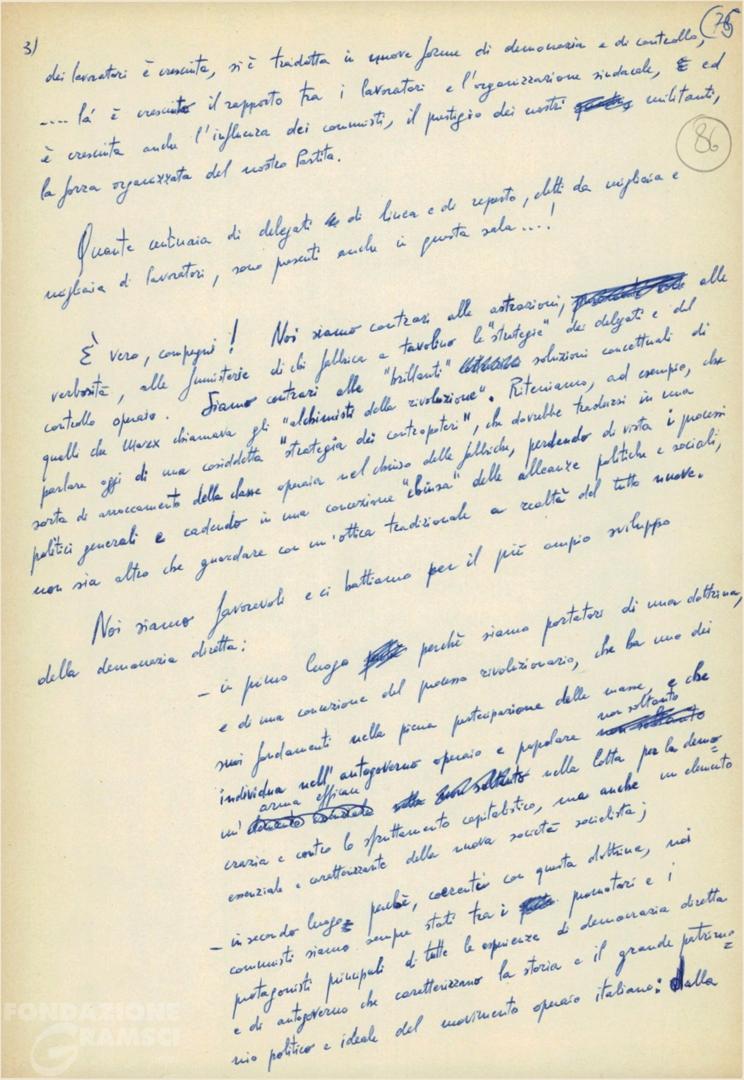 3)
75
86
dei lavoratori è cresciuta, si è tradotta in nuove forme di democrazia e di controllo,
.... là è cresciuto il rapporto tra i lavoratori e l'organizzazione sindacale, ed
è cresciuta anche l'influenza dei comunisti, il prestigio dei nostri militanti,
la forza organizzata del nostro Partito.
Quante centinaia di delegati di linea e di reparto, eletti da migliaia e
migliaia di lavoratori, sono presenti anche in questa sala...!
È vero, compagni! Noi siamo contrari alle astrazioni, alle
verbosità, alle fumisterie di chi fabbrica a tavolino le "strategie" dei delegati e del
controllo operaio. Siamo contrari alle "brillanti" soluzioni concettuali di
quelli che Marx chiamava gli "alchimisti della rivoluzione". Riteniamo, ad esempio, che
parlare oggi di una cosiddetta "strategia dei contropoteri", che dovrebbe tradursi in una
sorta di arroccamento della classe operaia nel chiuso delle fabbriche, perdendo di vista i processi
politici generali e cadendo in una concezione "chiusa" delle alleanze politiche e sociali,
non sia altro che guardare con un'ottica tradizionale a realtà del tutto nuove.
Noi siamo favorevoli e ci battiamo per il più ampio sviluppo
della democrazia diretta:
- in primo luogo perchè siamo portatori di una dottrina,
e di una concezione del processo rivoluzionario, che ha uno dei
suoi fondamenti nella piena partecipazione delle masse, e che
individua nell'autogoverno operaio e popolare non soltanto
un'arma efficace nella lotta per la demo=
crazia e contro lo sfruttamento capitalistico, ma anche un elemento
essenziale e caratterizzante della nuova società socialista;
- in secondo luogo perchè, coerenti con questa dottrina, noi
comunisti siamo sempre stati tra i promotori e i
protagonisti principali di tutte le esperienze di democrazia diretta
e di autogoverno che caratterizzano la storia e il grande patrimo=
nio politico e ideale del movimento operaio italiano: dalla
FONDAZIONE
GRAMSCI